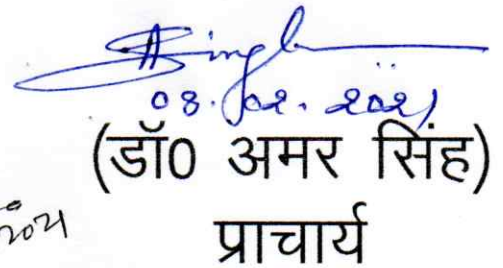 ASingh
08.02.2021
(डॉ0 अमर सिंह)
प्राचार्य